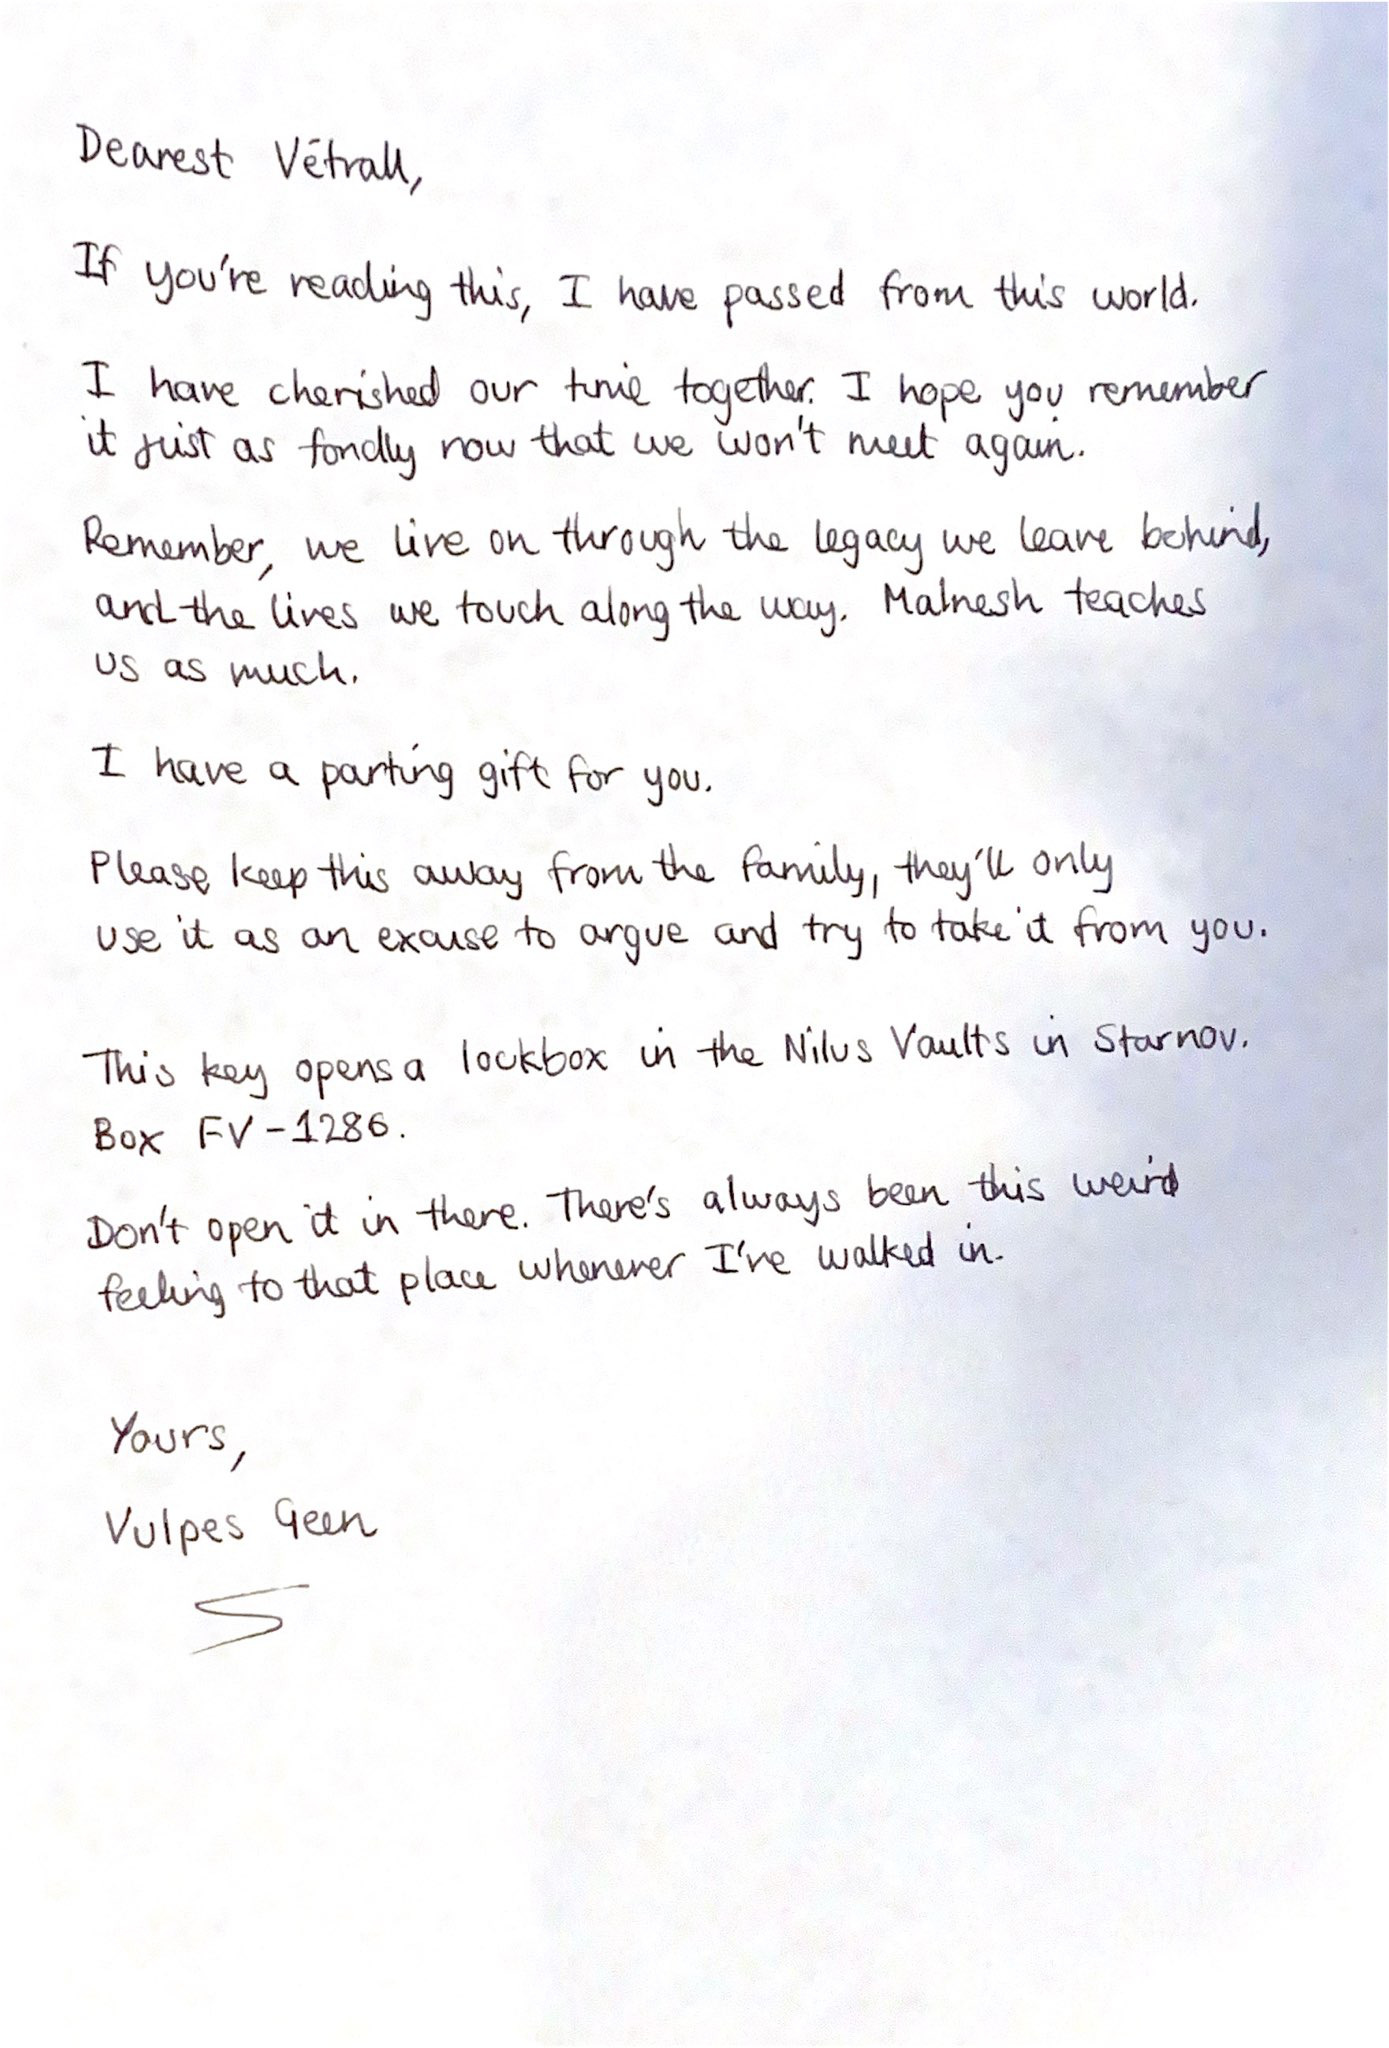 Dearest Vētrall,
If you're reading this, I have passed from this world.
I have cherished our time together. I hope you remember
it just as fondly now that we won't meet again.
Remember, we live on through the legacy we leave behind,
and the lives we touch along the way. Malnesh teaches
us as much.
I have a parting gift for you.
Please keep this away from the family, they'll only
use it as an excuse to argue and try to take it from you.
This key opens a lockbox in the Nilus Vaults in Starnov.
Box FV-1286.
Don't open it in there. There's always been this weird
feeling to that place whenever I've walked in.
Yours,
Vulpes Geen